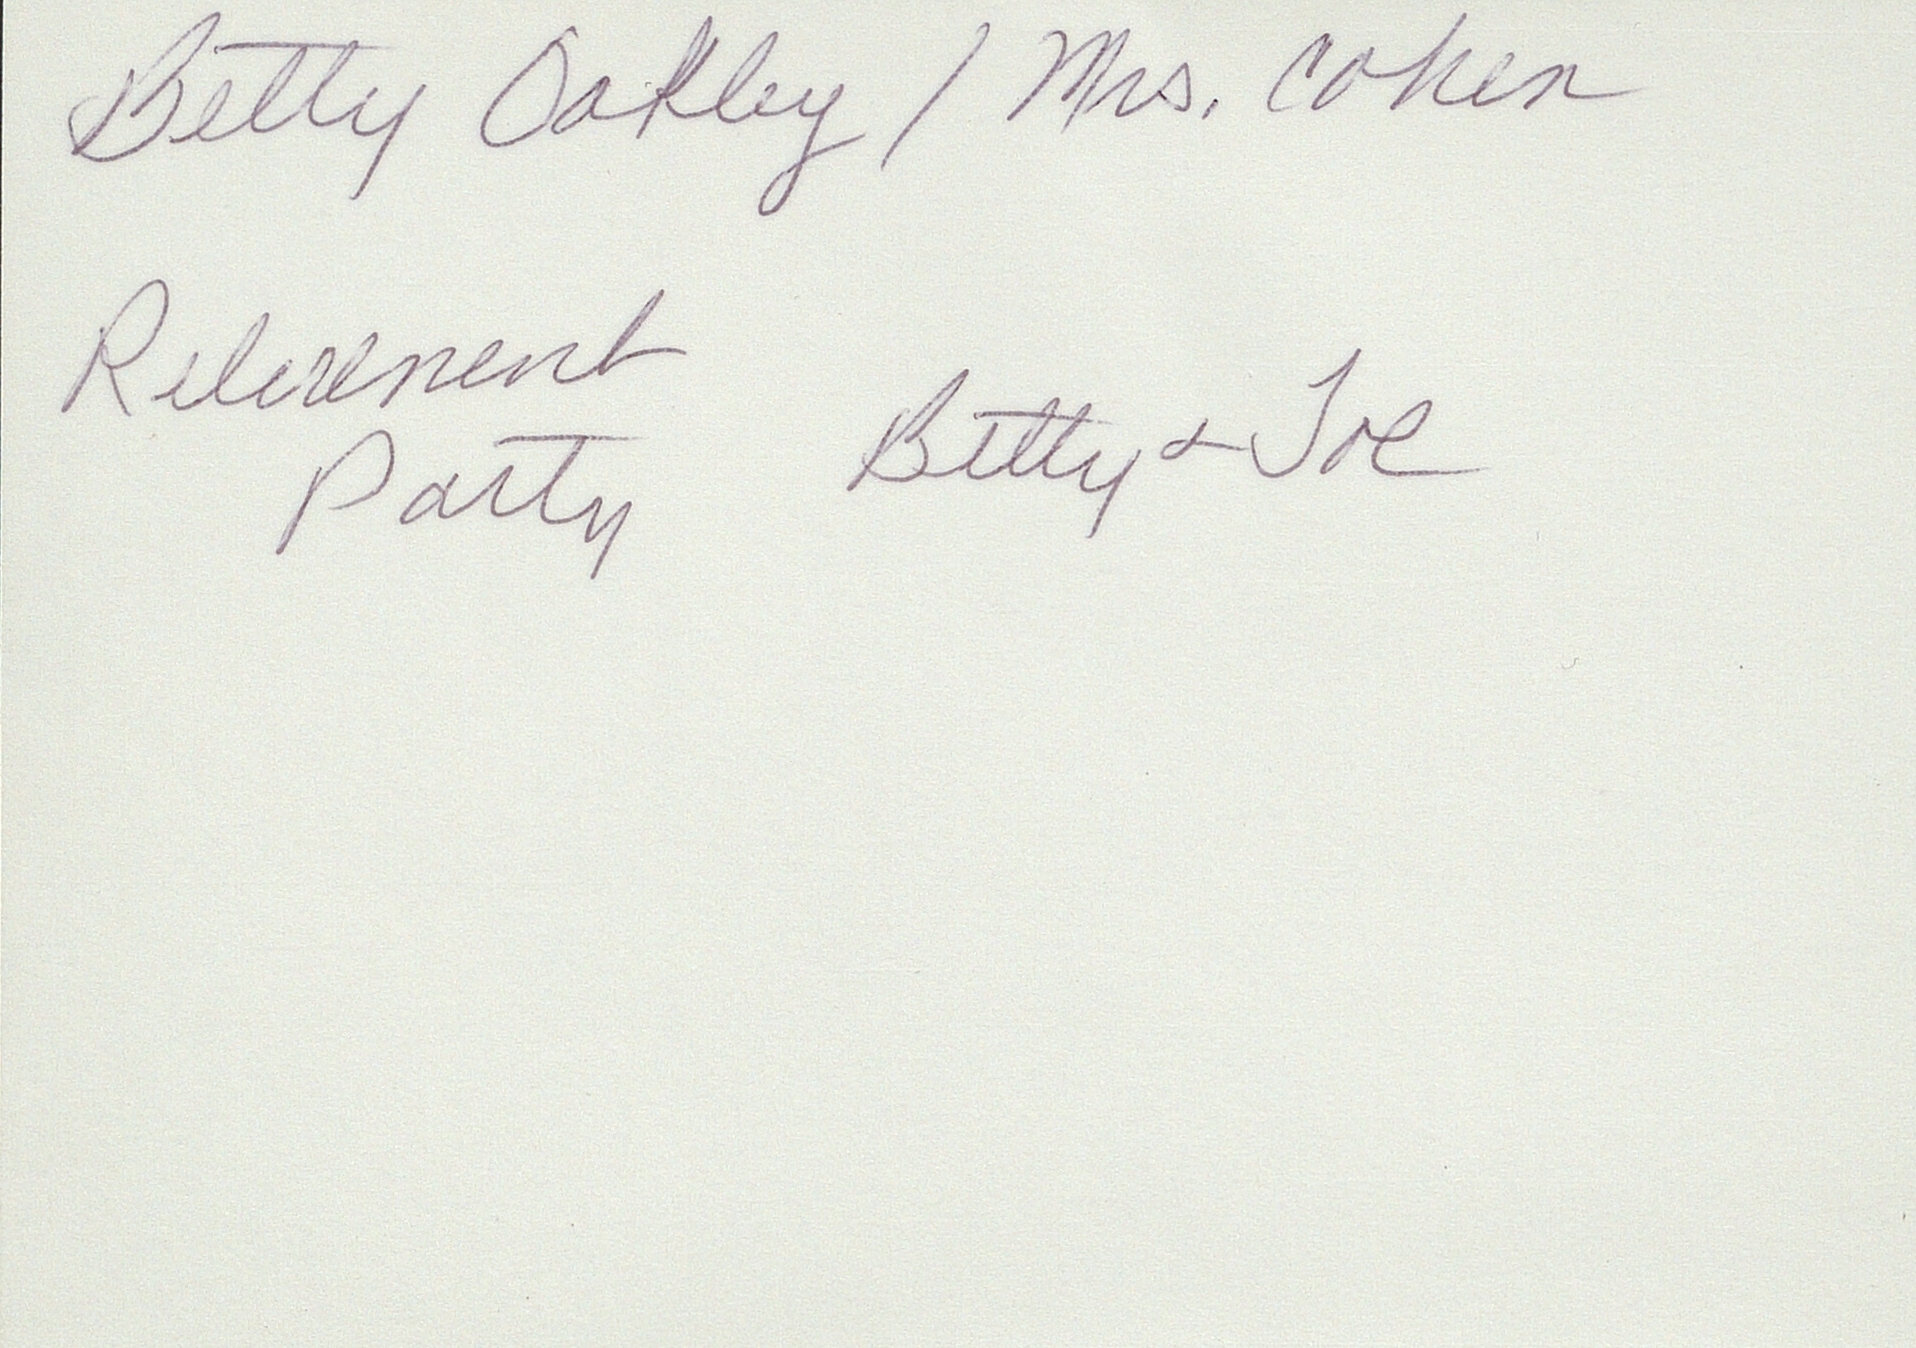 Betty Oakley / Mrs. Cohen
Retirement
Party
Betty & Joe